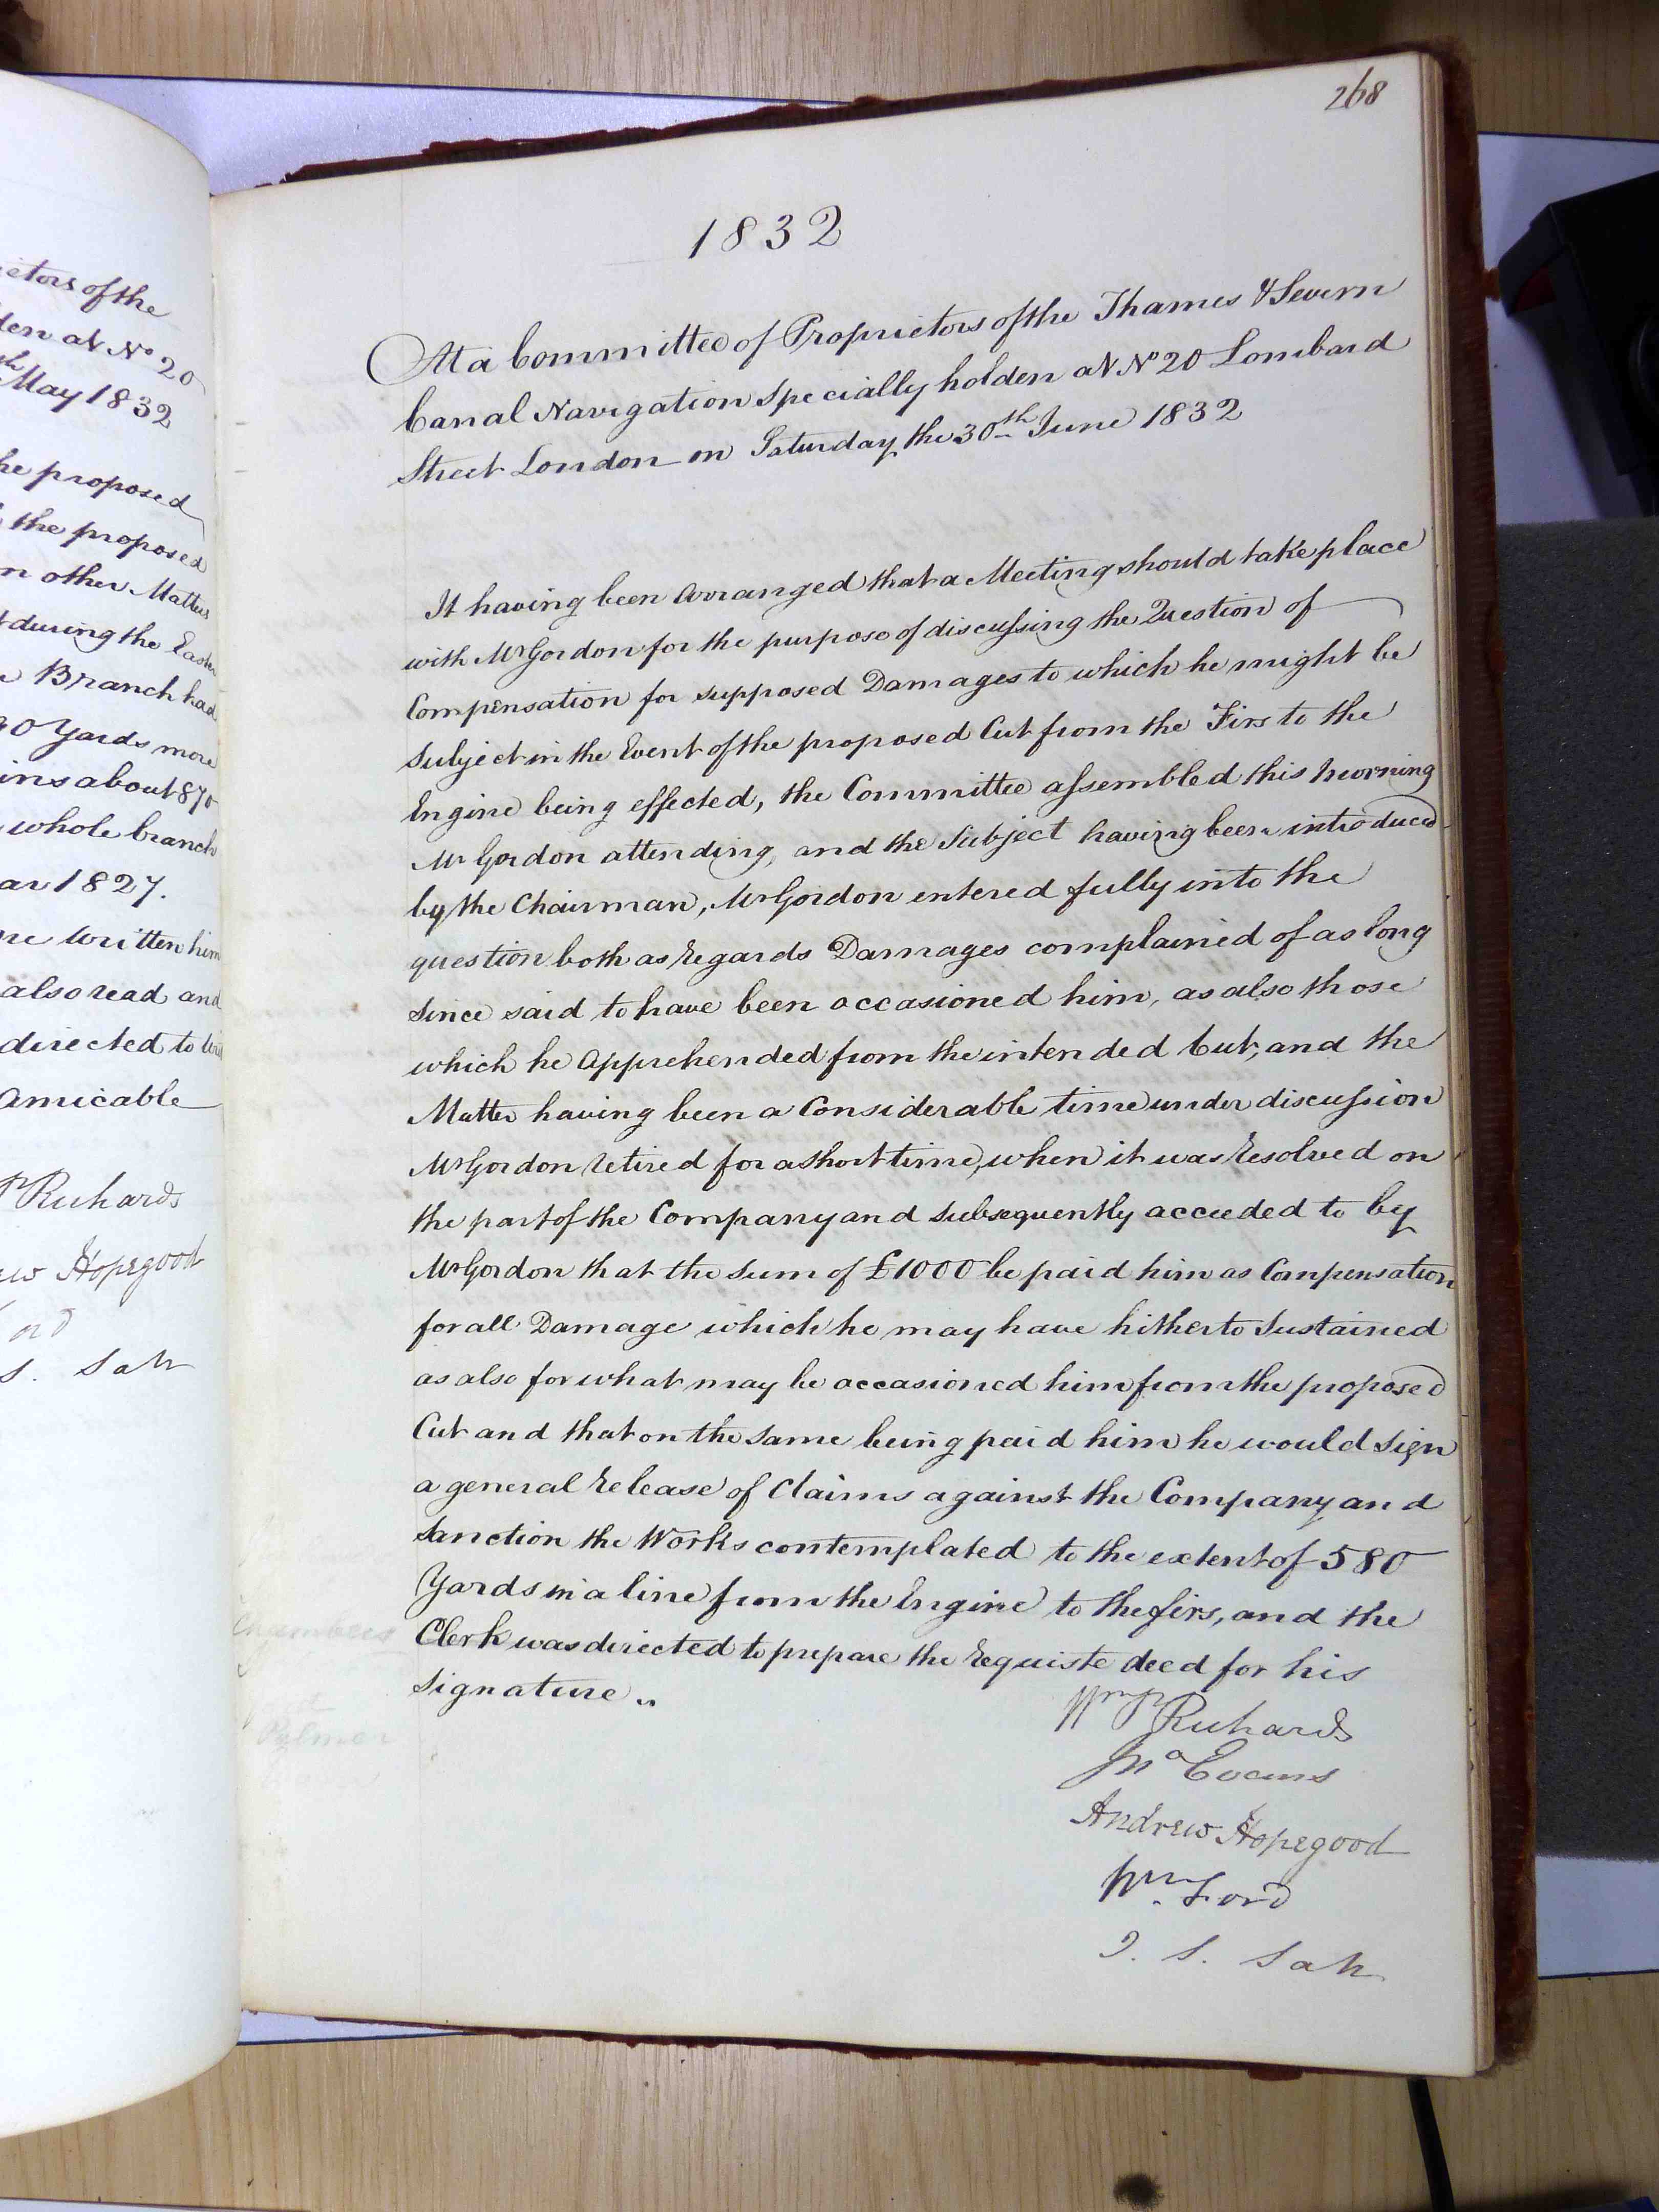 etors of the
den at No 20
th May 1832
he proposed
the proposed
n other Matters
t during the Easter
e Branch had
0 Yards more
ins about 870
whole branch
ar 1827.
re written him
also read and
directed to
amicable
Richards
ew Hopegood
ord
S. Salt
268
1832
At a Committee of Proprietors of the Thames & Severn
Canal Navigation specially holden at No 20 Lombard
Street London on Saturday the 30th June 1832
It having been arranged that a Meeting should take place
with Mr Gordon for the purpose of discussing the Question of
Compensation for supposed Damages to which he might be
Subject in the Event of the proposed Cut from the Firs to the
Engine being effected, the Committee assembled this morning
Mr Gordon attending, and the Subject having been introduced
by the Chairman, Mr Gordon entered fully into the
question both as regards Damages complained of as long
since said to have been occasioned him, as also those
which he apprehended from the intended Cut, and the
Matter having been a Considerable time under discussion
Mr Gordon retired for a short time, when it was resolved on
the part of the Company and subsequently acceeded to by
Mr Gordon that the sum of £1000 be paid him as Compensation
for all Damage which he may have hitherto Sustained
as also for what may be occasioned him from the proposed
Cut and that on the same being paid him he would sign
a general release of Claims against the Company and
Sanction the Works contemplated to the extent of 580
Yards in a line from the Engine to the firs, and the
Clerk was directed to prepare the requiste deed for his
Signature
Wm Richards
Jno Evans
Andrew Hopegood
Wm Ford
J. S. Salt
Palmer